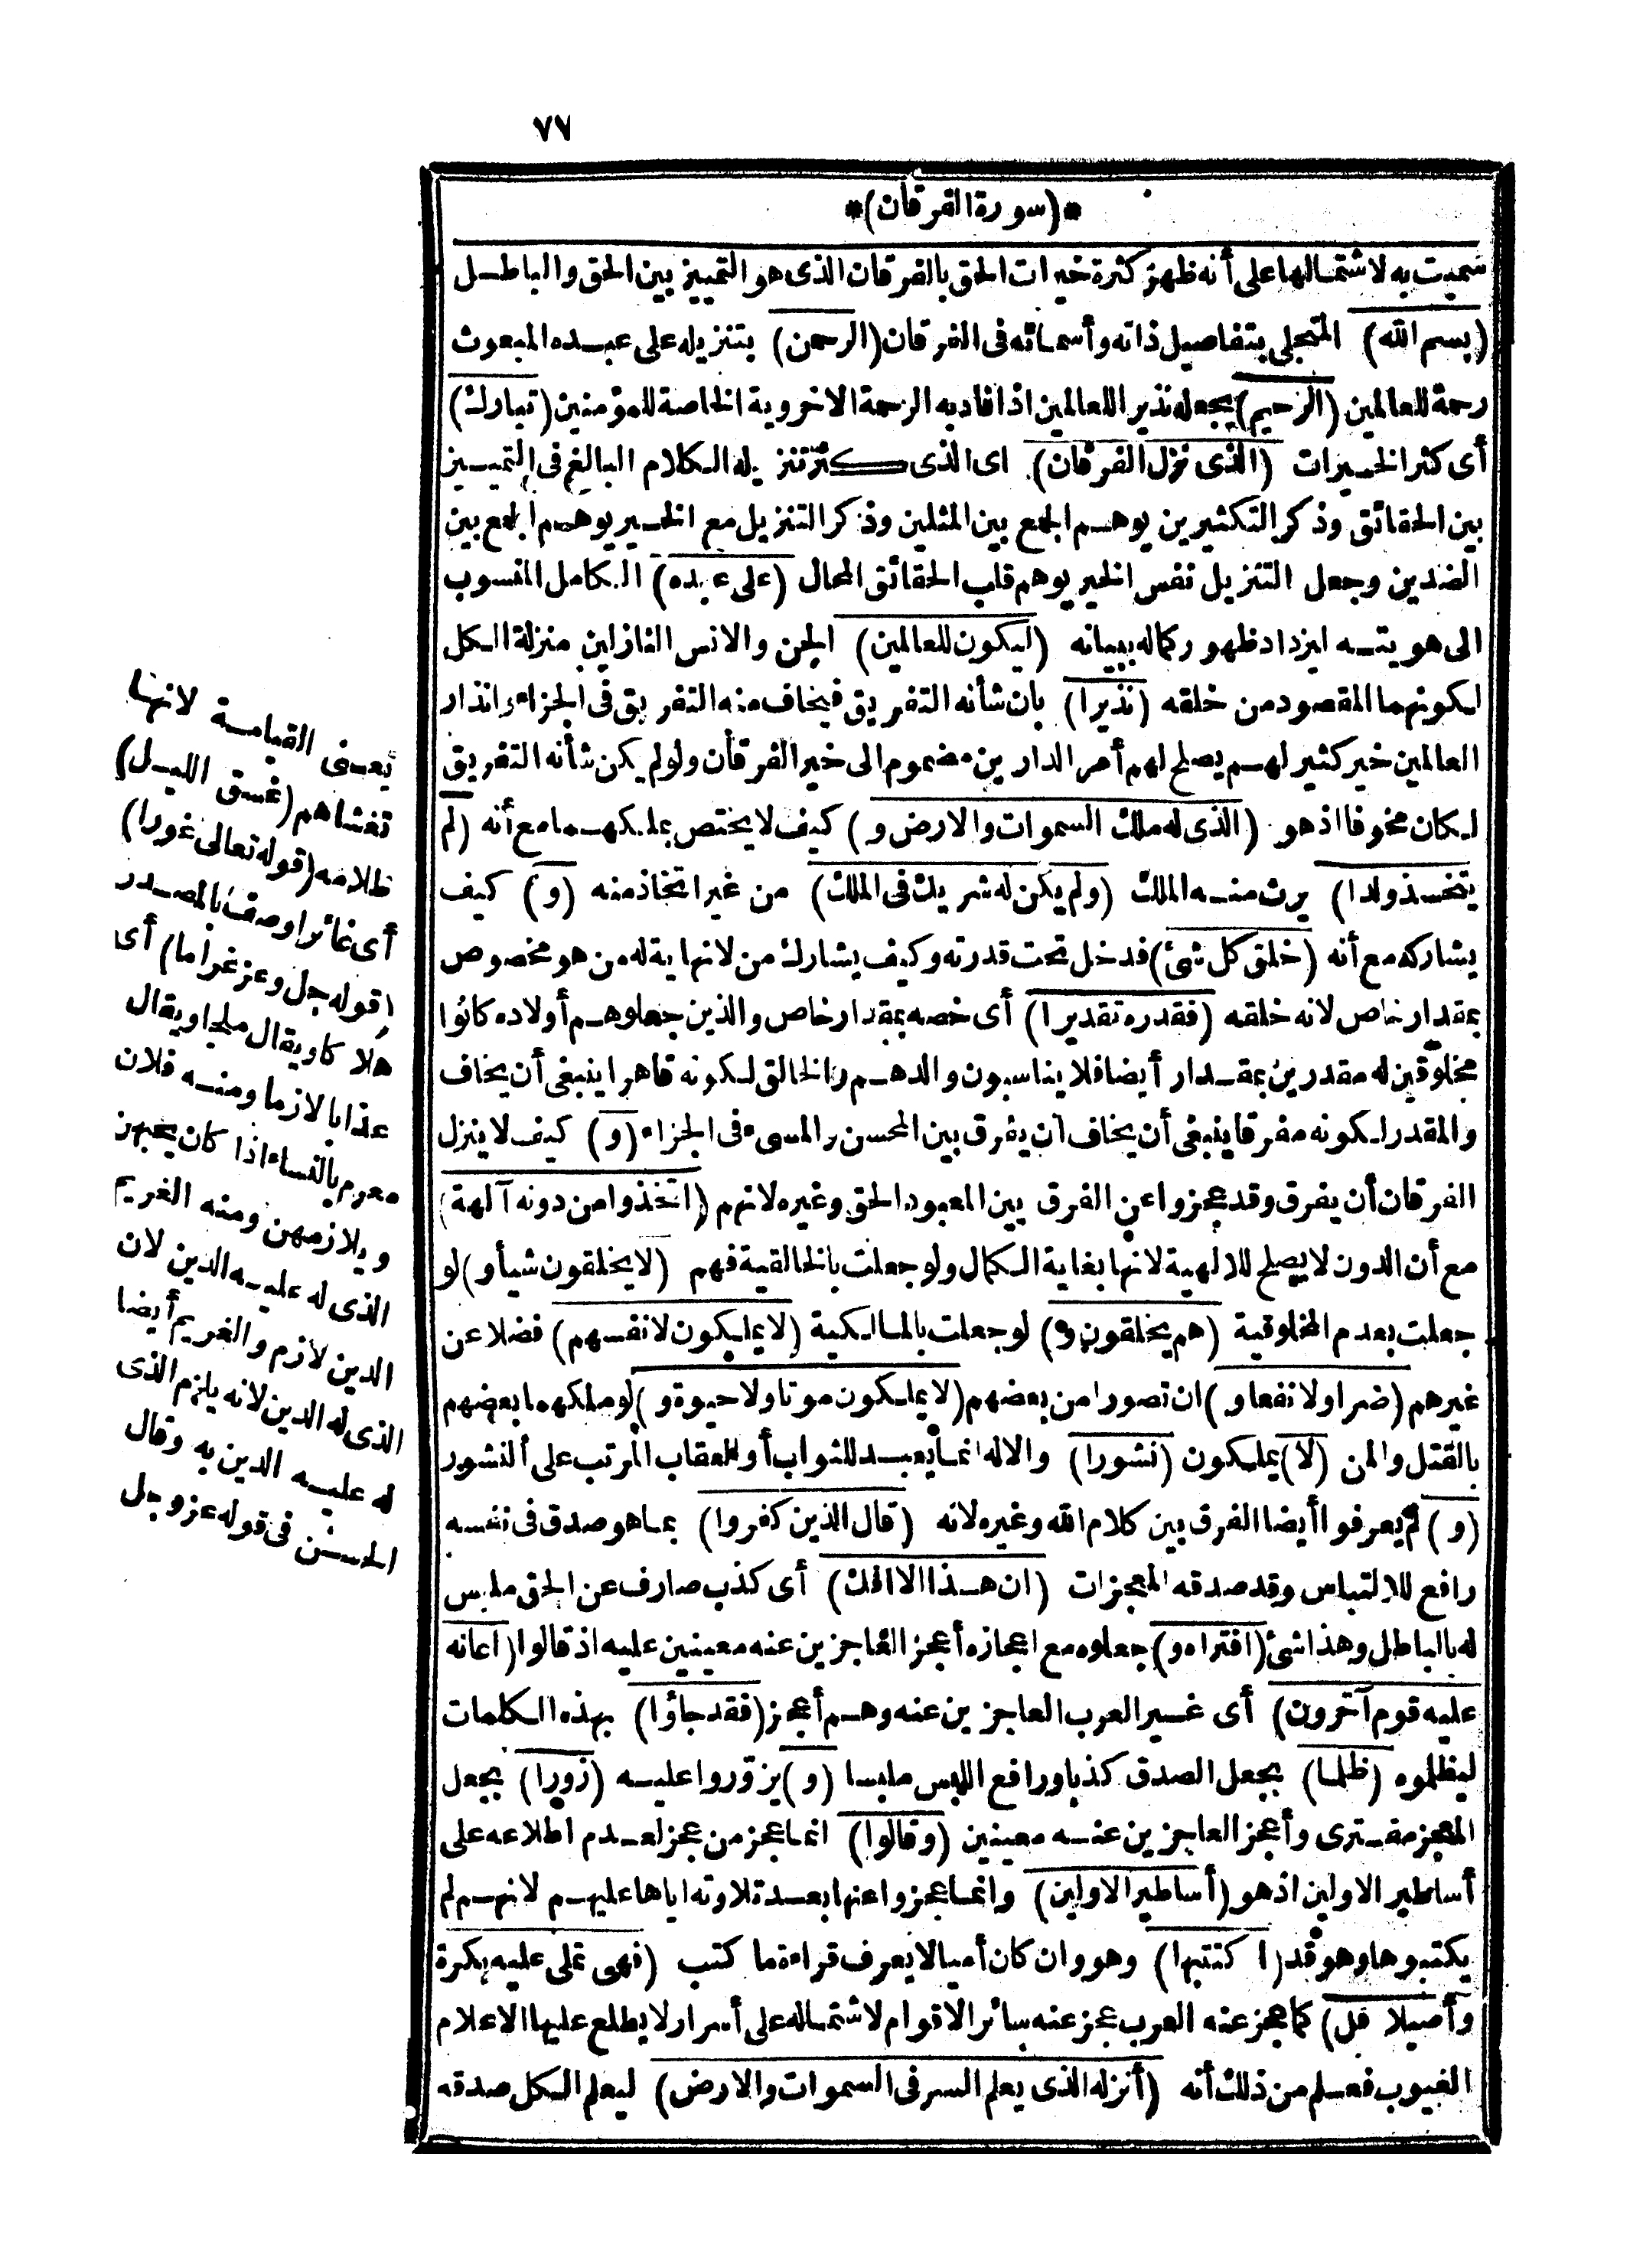 ٧٧
*(سورة الفرقان)*
سميت به لاشتمالها على أنه ظهر كثرة خيرات الحق بالفرقان الذى هو التمييز بين الحق والباطل
(بسم الله) المتجلى بتفاصيل ذاته وأسمائه فى الفرقان (الرحمن) بتنزيله على عبده المبعوث
رحمة للعالمين (الرحيم) بجعله نذيرا للعالمين اذ افاد به الرحمة الاخروية الخاصة للمؤمنين (تبارك)
أى كثر الخيرات (الذى نزل الفرقان) اى الذى كثر تنزيله الكلام البالغ فى التمييز
بين الحقائق وذكر التكثيرين يوهم الجمع بين المثلين وذكر التنزيل مع الخير يوهم الجمع بين
الضدين وجعل التنزيل نفس الخير يوهم قلب الحقائق المحال (على عبده) الكامل المنسوب
الى هويته ليزداد ظهور كماله ببيانه (ليكون للعالمين) الجن والانس النازلين منزلة الكل
لكونهما المقصود من خلقه (نذيرا) بان شأنه التفريق فيخاف منه التفريق فى الجزاء وانذار
العالمين خير كثير لهم يصلح لهم أمر الدارين مضموم الى خير الفرقان ولو لم يكن شأنه التفريق
لكان مخوفا اذ هو (الذى له ملك السموات والارض و) كيف لا يختص بملكهما مع أنه (لم
يتخذ ولدا) يرث منه الملك (ولم يكن له شريك فى الملك) من غير اتخاذ منه (و) كيف
يشاركه مع أنه (خلق كل شئ) فدخل تحت قدرته وكيف يشارك من لا نهاية له من هو مخصوص
بمقدار خاص لانه خلقه (فقدره تقديرا) أى خصه بمقدار خاص والذين جعلوهم أولاده كانوا
مخلوقين له مقدرين بمقدار أيضا فلا يناسبون والدهم والخالق لكونه قاهرا ينبغى أن يخاف
والمقدر لكونه مفرقا ينبغى أن يخاف أن يفرق بين المحسن والمسىء فى الجزاء (و) كيف لا ينزل
الفرقان أن يفرق وقد عجزوا عن الفرق بين المعبود الحق وغيره لانهم (اتخذوا من دونه آلهة)
مع أن الدون لا يصلح للالهية لانها بغاية الكمال ولو جعلت بالخالقية فهم (لا يخلقون شيأ و) لو
جعلت بعدم المخلوقية (هم يخلقون و) لو جعلت بالمالكية (لا يملكون لانفسهم) فضلا عن
غيرهم (ضرا ولا نفعا و) ان تصورا من بعضهم (لا يملكون موتا ولا حيوة و) لو ملكهما بعضهم
بالقتل والمن (لا) يملكون (نشورا) والاله انما يعبد للثواب أو للعقاب المرتب على النشور
(و) لم يعرفوا أيضا الفرق بين كلام الله وغيره لانه (قال الذين كفروا) بما هو صدق فى نفسه
رافع للالتباس وقد صدقه المعجزات (ان هذا الا افك) أى كذب صارف عن الحق ملبس
له بالباطل وهذا شئ (افتراه و) جعلوه مع اعجازه أعجز العاجزين عنه معينين عليه اذ قالوا (أعانه
عليه قوم آخرون) أى غير العرب العاجزين عنه وهم أعجز (فقد جاؤا) بهذه الكلمات
ليظلموه (ظلما) بجعل الصدق كذبا ورافع اللبس ملبسا (و) يزوروا عليه (زورا) بجعل
المعجز مفترى وأعجز العاجزين عنه معينين (وقالوا) انما عجز من عجز لعدم اطلاعه على
أساطير الاولين اذ هو (أساطير الاولين) وانما عجزوا عنها بعد تلاوته اياها عليهم لانهم لم
يكتبوها وهو قد (اكتتبها) وهو وان كان أميا لا يعرف قراءة ما كتب (فهى تملى عليه بكرة
وأصيلا قل) كما عجز عنه العرب عجز عنه سائر الاقوام لاشتماله على أسرار لا يطلع عليها الا علام
الغيوب فعلم من ذلك أنه (أنزله الذى يعلم السر فى السموات والارض) ليعلم الكل صدقه
يعنى القيامة لانها
تغشاهم (غسق الليل)
ظلامه (قوله تعالى غورا)
أى غائرا وصف بالمصدر
(قوله جل وعز غراما) أى
هلاكا ويقال ملحا ويقال
عذابا لازما ومنه فلان
مغرم بالنساء اذا كان يحبهن
ويلازمهن ومنه الغريم
الذى له عليه الدين لان
الدين لازم والغريم أيضا
الذى له الدين لانه يلزم الذى
له عليه الدين به وقال
الحسن فى قوله عز وجل